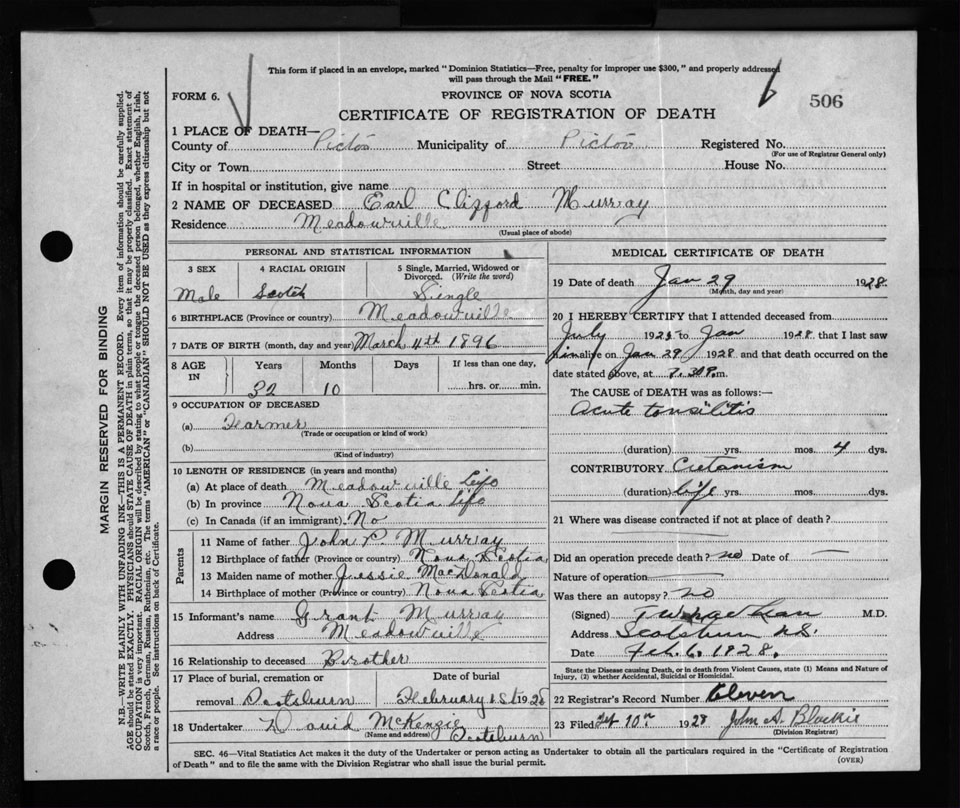 This form if placed in an envelope, marked "Dominion Statistics—Free, penalty for improper use $300," and properly addressed
will pass through the Mail "FREE."
FORM 6.
PROVINCE OF NOVA SCOTIA
506
CERTIFICATE OF REGISTRATION OF DEATH
1 PLACE OF DEATH—
County of Pictou Municipality of Pictou Registered No.
(For use of Registrar General only)
City or Town Street House No.
If in hospital or institution, give name
2 NAME OF DECEASED Earl Clifford Murray
Residence Meadowville
(Usual place of abode)
PERSONAL AND STATISTICAL INFORMATION
3 SEX 4 RACIAL ORIGIN 5 Single, Married, Widowed or Divorced. (Write the word)
Male Scotch Single
6 BIRTHPLACE (Province or country) Meadowville
7 DATE OF BIRTH (month, day and year) March 4th 1896
8 AGE IN Years Months Days If less than one day,
32 10 hrs. or min.
9 OCCUPATION OF DECEASED
(a) Farmer
(Trade or occupation or kind of work)
(b)
(Kind of industry)
10 LENGTH OF RESIDENCE (in years and months)
(a) At place of death Meadowville Life
(b) In province Nova Scotia Life
(c) In Canada (if an immigrant) No
Parents
11 Name of father John Murray
12 Birthplace of father (Province or country) Nova Scotia
13 Maiden name of mother Jessie MacDonald
14 Birthplace of mother (Province or country) Nova Scotia
15 Informant's name Grant Murray
Address Meadowville
16 Relationship to deceased Brother
17 Place of burial, cremation or Date of burial
removal Scotsburn February 1st 1928
18 Undertaker David McKenzie
(Name and address) Scotsburn
MEDICAL CERTIFICATE OF DEATH
19 Date of death Jan 29 1928
(Month, day and year)
20 I HEREBY CERTIFY that I attended deceased from
July 192 to Jan 1928 that I last saw
him alive on Jan 29 1928 and that death occurred on the
date stated above, at m.
The CAUSE OF DEATH was as follows:—
Acute tonsilitis
(duration) yrs. mos. 4 dys.
CONTRIBUTORY Cretanism
(duration) life yrs. mos. dys.
21 Where was disease contracted if not at place of death?
Did an operation precede death? no Date of —
Nature of operation —
Was there an autopsy? no
(Signed) M.D.
Address Scotsburn N.S.
Date Feb. 6. 1928.
State the Disease causing Death, or in death from Violent Causes, state (1) Means and Nature of
Injury, (2) whether Accidental, Suicidal or Homicidal.
22 Registrar's Record Number Eleven
23 Filed 10th 1928 John A. Blackie
(Division Registrar)
SEC. 46—Vital Statistics Act makes it the duty of the Undertaker or person acting as Undertaker to obtain all the particulars required in the "Certificate of Registration
of Death" and to file the same with the Division Registrar who shall issue the burial permit.
(OVER)
MARGIN RESERVED FOR BINDING
N.B.—WRITE PLAINLY WITH UNFADING INK—THIS IS A PERMANENT RECORD. Every item of information should be carefully supplied.
AGE should be stated EXACTLY. PHYSICIANS should STATE CAUSE OF DEATH in plain terms, so that it may be properly classified. Exact statement of
OCCUPATION is very important. RACIAL ORIGIN will be described by stating to what people or tongue the deceased person belonged, whether English, Irish,
Scotch, French, German, Russian, Ruthenian, etc. The terms "AMERICAN" or "CANADIAN" SHOULD NOT BE USED as they express citizenship but not
a race or people. See instructions on back of Certificate.